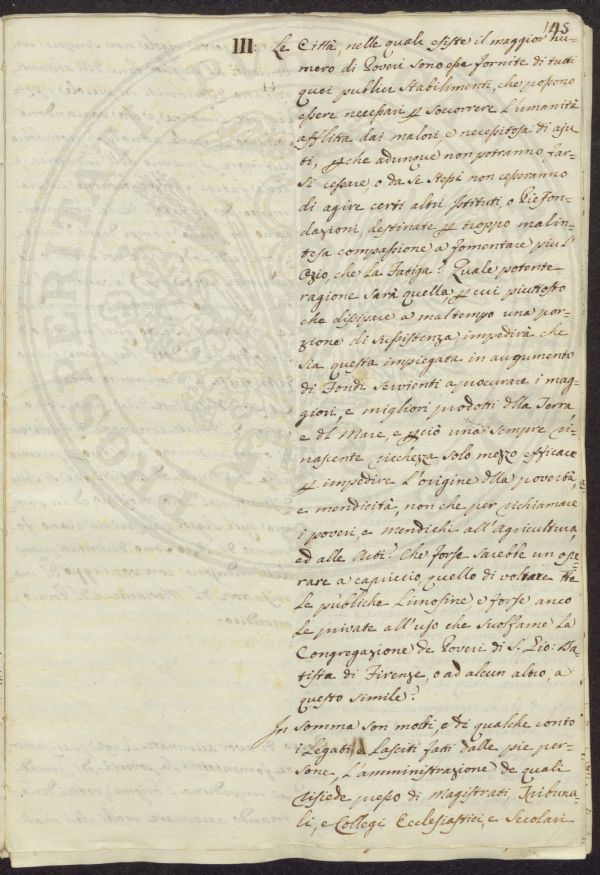 145
III: Le Città, nelle quale esiste il maggior nu-
mero di Poveri sono esse fornite di tutti
quei publici stabilimenti, che possono
essere necessari p soccorrere l'umanità
afflitta dai malori, e necessitosa di aju-
ti, pche adunque non potranno far-
si cessare, o da se stessi non cesseranno
di agire certi altri Istituti, o Pie fon-
dazioni destinate p troppo malin-
tesa compassione a fomentare più l'
ozio, che la fatiga? Quale potente
ragione sarà quella, p cui piuttosto
che dissipare a maltempo una por-
zione di sussistenza, impedirà che
sia questa impiegata in augumento
di Fondi servienti a procurare i mag-
giori, e migliori prodotti dlla Terra,
e dl Mare, e pciò una sempre ri-
nascente ricchezza solo mezzo efficace
p impedire l'origine dlla povertà,
e mendicità, non che per richiamare
i poveri, e mendichi all'Agricultura,
ed alle Arti? Che forse sarebbe un ope-
rare a capriccio, quello di voltare tte
le publiche limosine, e forse anco
le private all'uso che suolfarne la
Congregazione de Poveri di S. Gio: Ba-
tista di Firenze, o ad alcun altro, a
questo simile?
In somma son molti, e di qualche conto
i Legati, e Lasciti fatti dalle pie per-
sone, l'amministrazione de quali
risiede presso di Magistrati, Tribuna-
li, e Collegi Ecclesiastici, e Secolari